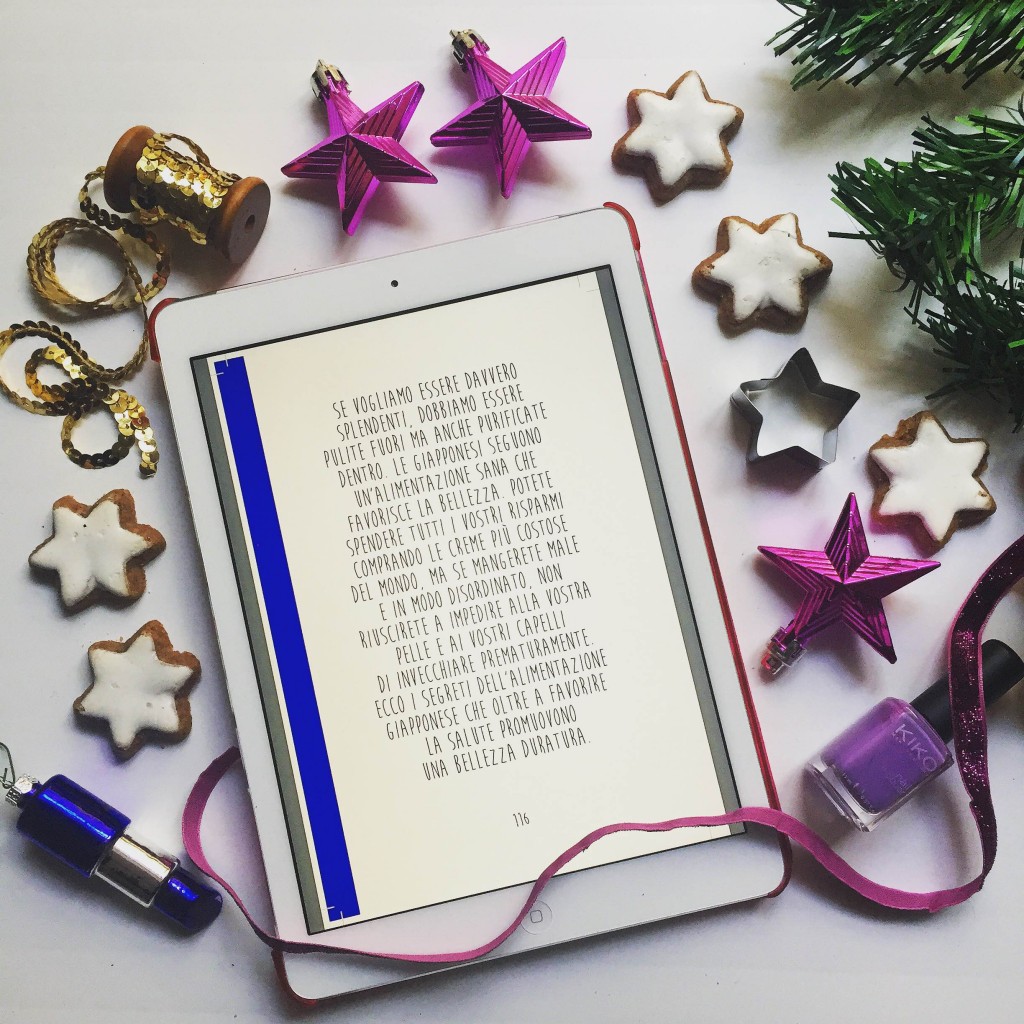 SE VOGLIAMO ESSERE DAVVERO
SPLENDENTI, DOBBIAMO ESSERE
PULITE FUORI MA ANCHE PURIFICATE
DENTRO. LE GIAPPONESI SEGUONO
UN'ALIMENTAZIONE SANA CHE
FAVORISCE LA BELLEZZA. POTETE
SPENDERE TUTTI I VOSTRI RISPARMI
COMPRANDO LE CREME PIÙ COSTOSE
DEL MONDO, MA SE MANGERETE MALE
E IN MODO DISORDINATO, NON
RIUSCIRETE A IMPEDIRE ALLA VOSTRA
PELLE E AI VOSTRI CAPELLI
DI INVECCHIARE PREMATURAMENTE.
ECCO I SEGRETI DELL'ALIMENTAZIONE
GIAPPONESE CHE OLTRE A FAVORIRE
LA SALUTE PROMUOVONO
UNA BELLEZZA DURATURA.
116
KIKO